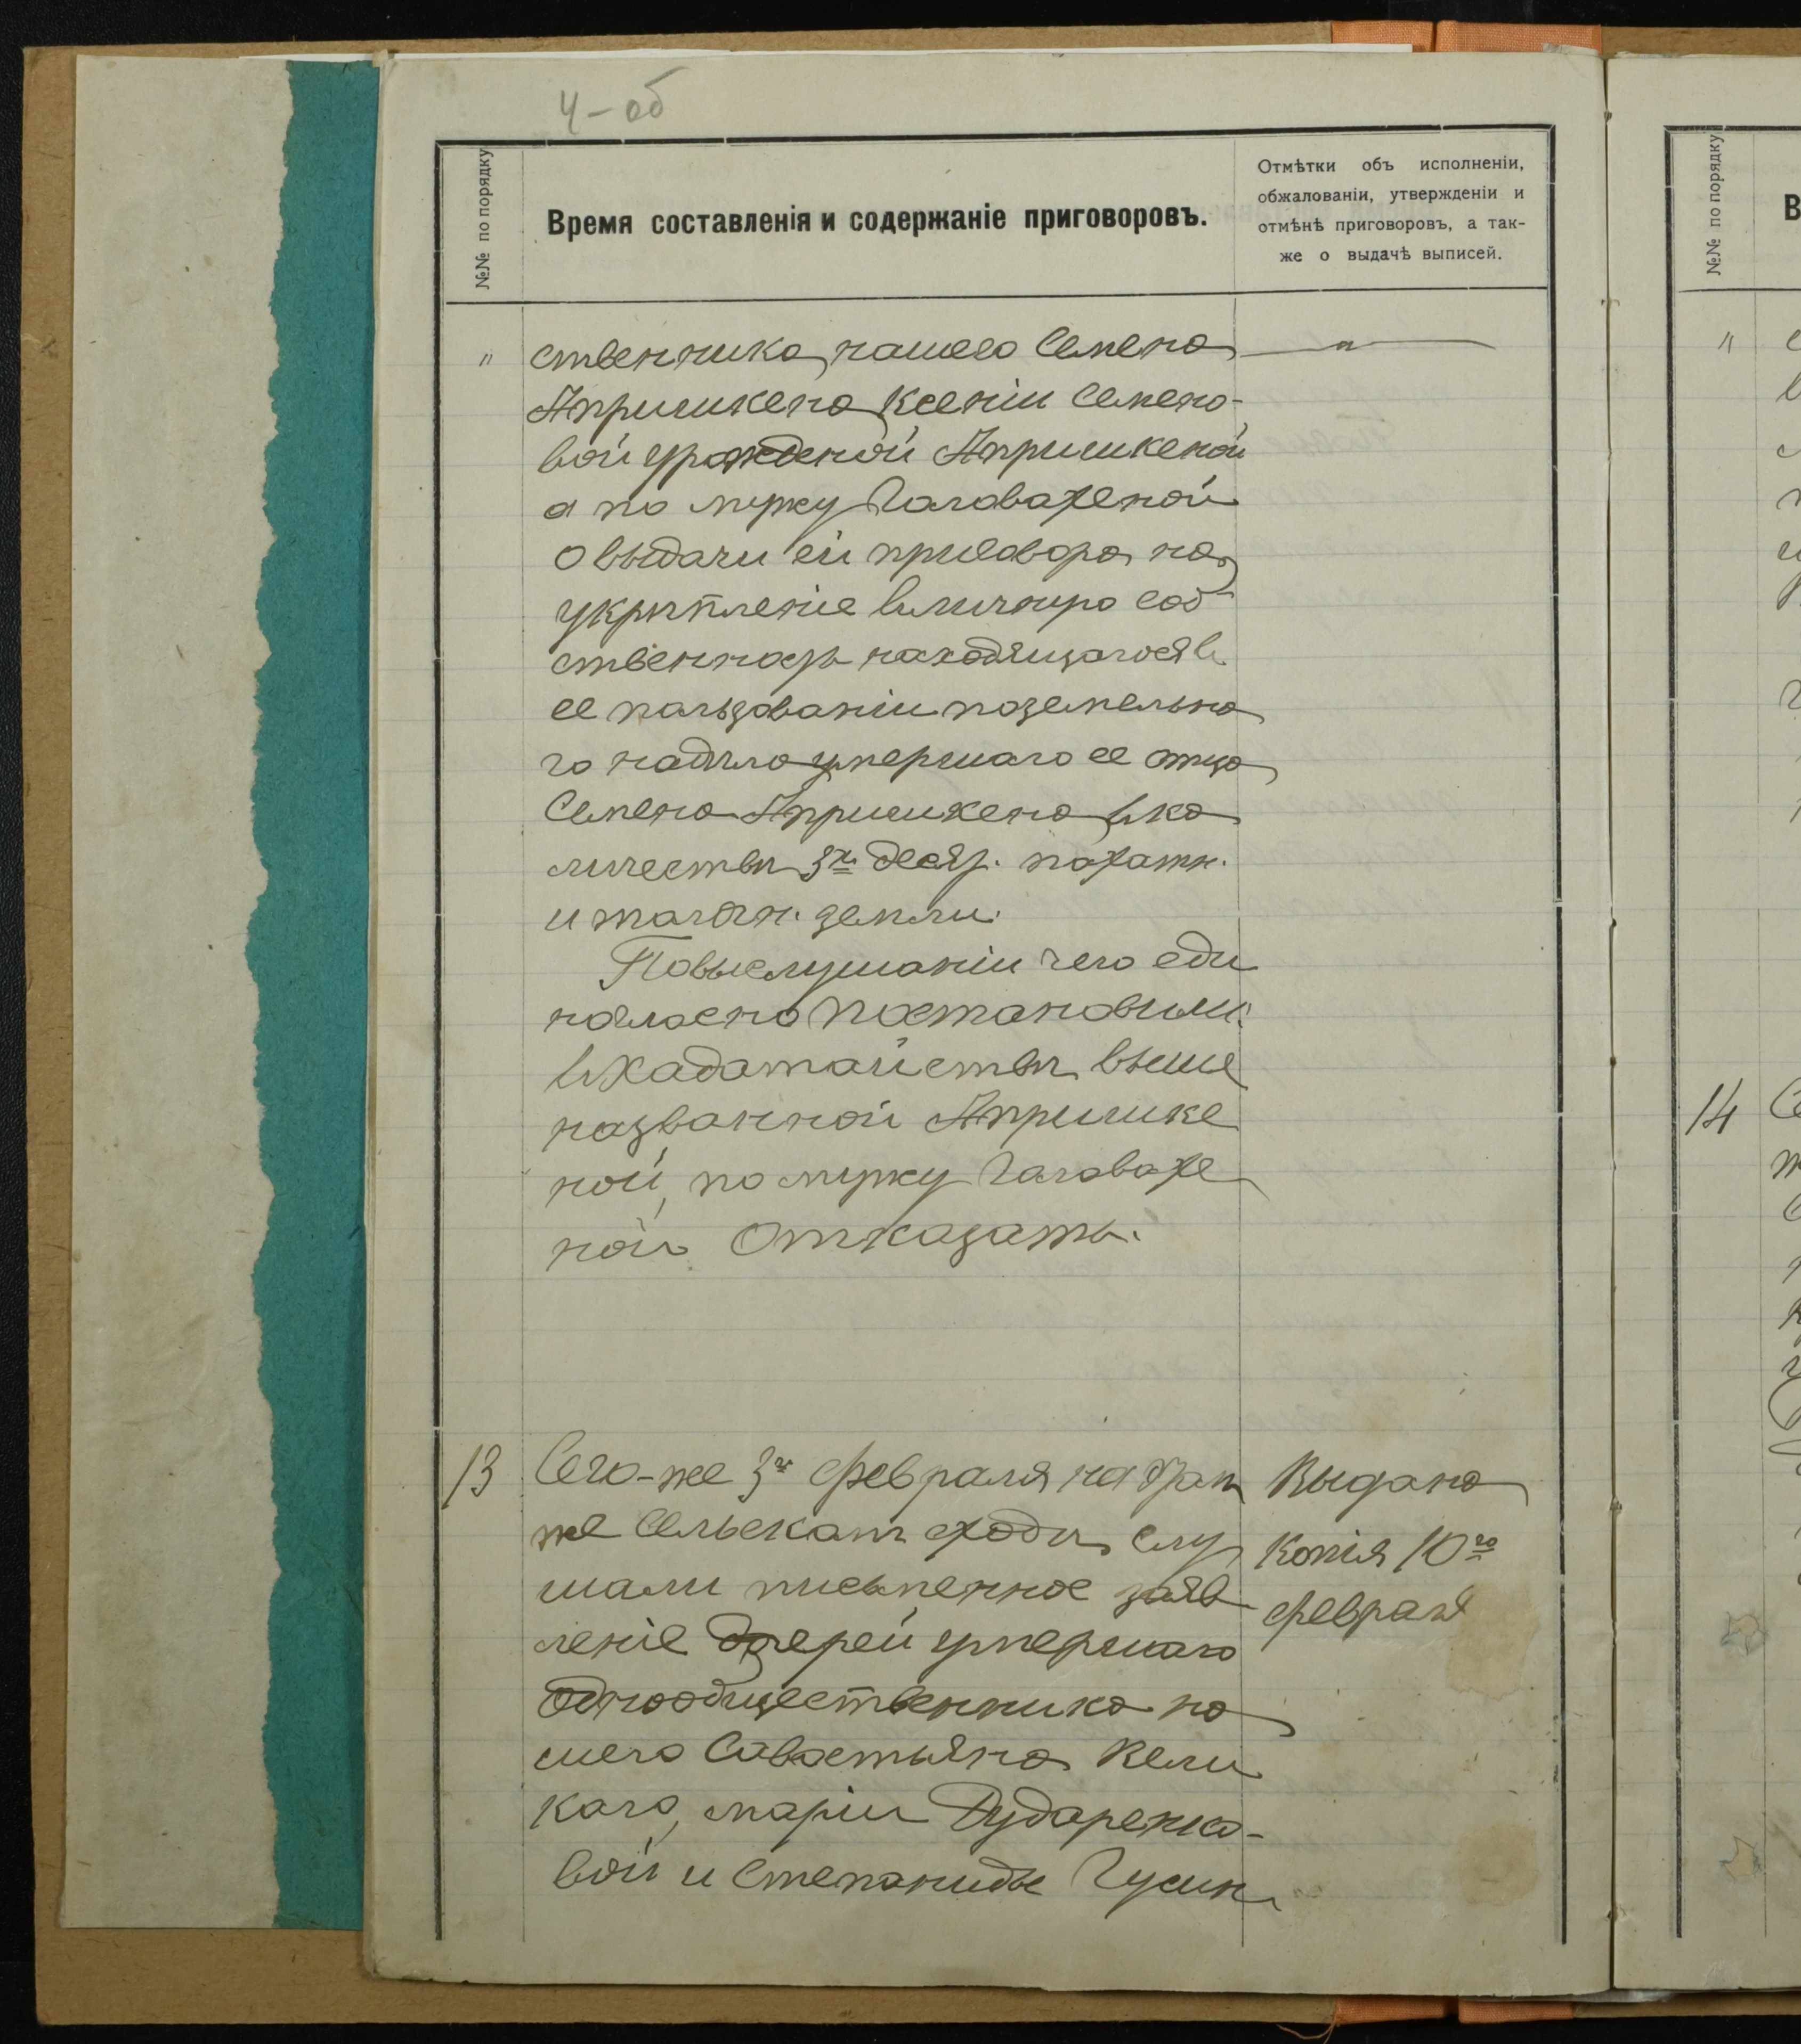 4-об
№№ по порядку
Время составленія и содержаніе приговоровъ.
Отмѣтки объ исполненіи,
обжалованіи, утвержденіи и
отмѣнѣ приговоровъ, а так-
же о выдачѣ выписей.
" ственника, нашего Семена — " —
Апришкена Ксеніи Семено-
вой урожденой Апришкеной
а по мужу
о выдачи ей приговора на
укрѣпленіе въ личную соб
ственность находящагося въ
ее пользованіи поземельна
го надѣла умершаго ее отца
Семена Апришкена въ ко
личествѣ 3х десят. пахатн.
и толочн. земли.
По выслушаніи чего еди
ногласно постановили:
въ хадатайствѣ выше
названной Апришке
ной, по мужу
ной Отказать.
13 Сего-же 3го февраля на том
же Сельскомъ сходѣ, слу
шали письменное заяв
леніе дочерей умершаго
Однообщественника на
шего Савостьяна Вели
каго, маріи Дударенко-
вой и Степаниды Гусин
Выдана
копія 10го
февраля
№№ по порядку
В
"
14